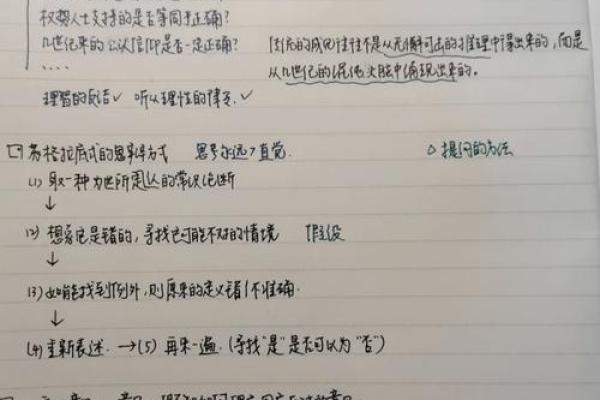 权势人士支持的是否等同于正确?
几世纪来的公认信仰是否一定正确? 传统的成见往往不是从无懈可击的推理中得出来的,而是
.... 从几世纪的混沌头脑中涌现出来的。
理智的反诘✓ 听从理性的律令.✓
苏格拉底式的思考方式 思考永远>直觉. ○提问的方法
(1) 取一种为世所定认的常识论断
↓
(2) 想象它是错的,寻找它可能不对的情境 假设
↓
(3) 如能找到例外,则原来的定义错/不准确.
↓
(4) 重新表述. →(5) 再来一遍. (寻找"是"是否可以为"否")